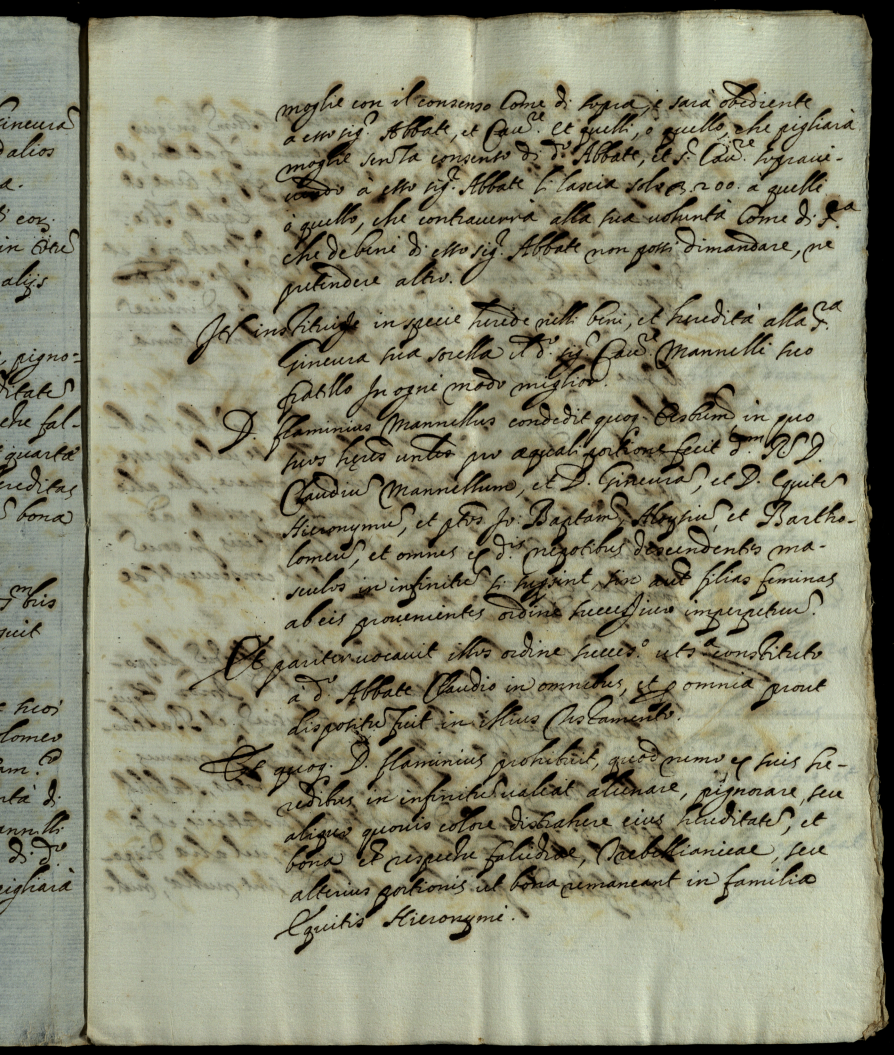 Gineura
alios
a.
in
alijs
pigno=
che fal-
quarta
hereditas
bona
bris
suoi
lomeo
di
di d.º
pigliarà
moglie con il consenso Come di sopra, e sarà obediente
à esso sig.r Abbate, et Cau.re et quelli, ò quello, che pigliarà
moglie senza consenso di d.º Abbate, et s.r Cau.re sopraui-
uendo à esso sig.r Abbate li lascia solo 200. a quelli
ò quello, che contrauerrà alla sua uolontà Come di s.ª
che de beni di esso sig.r Abbate non possi dimandare, ne
pretendere altro.
instituisce in specie herede nelli beni, et heredità alla s.ra
Gineura sua sorella il d.º sig.r Cau.re Mannelli suo
fratello In ogni modo miglior.
D. flaminius Mannellus condedit quoq. testum, in quo
suos hęres untes pro aequali portione fecit d.um D.
Claudiũ Mannellum, et D. Gineurã, et D. Equitẽ
Hieronymũ, et Jo: Baptam, Aloysiũ, et Bartho-
lomeũ, et omnes ex d.is nepotibus descendentes ma-
sculos in infinitũ si supsint, sin aũt filias feminas
ab eis prouenientes ordine successiuo imperpetuũ.
Et pariter uocauit illos ordine success.º ut s.ª constituto
à d.º Abbate Claudio in omnibus, et p omnia prout
dispositũ fuit in illius Testamento.
Et quoq. D. flaminius prohibuit, quod nemo ex suis he-
redibus in infinitũ ualeat alienare, pignorare, seu
aliquo quouis colore distrahere eius hereditatẽ, et
bona et respectu falcidiae, Trebellianicae, seu
alterius portionis ut bona remaneant in familia
Equitis Hieronymi.